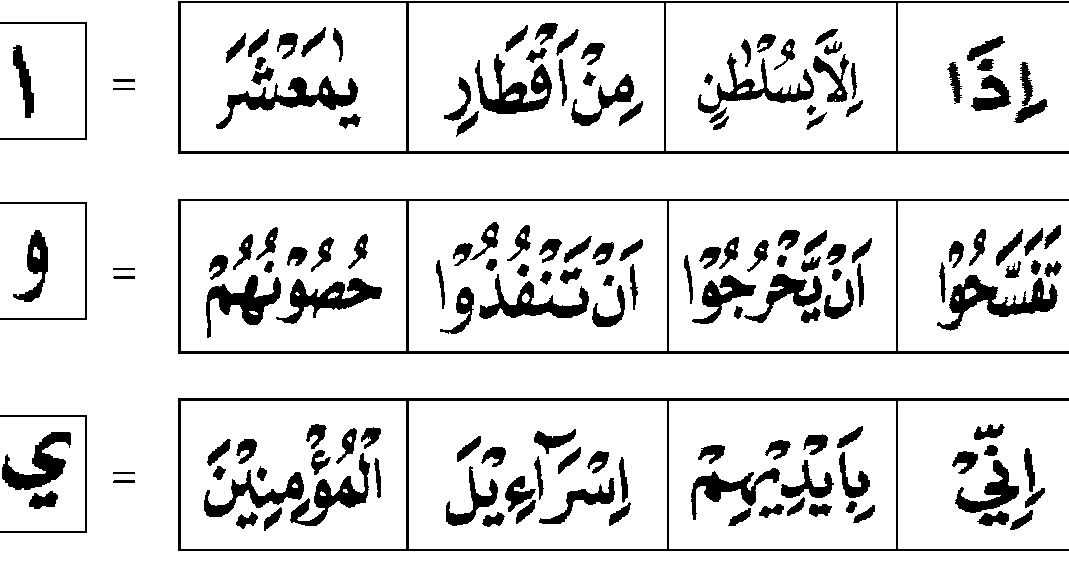 اِذَا اِلَّا بِسُلْطٰنٍ مِنْ اَقْطَارِ يٰمَعْشَرَ = ا
تَفَسَّحُوْا اَنْ يَّخْرُجُوْا اَنْ تَنْفُذُوْا حُصُوْنُهُمْ = و
اِنِّيْ بِاَيْدِيْهِمْ اِسْرَآءِيْلَ الْمُؤْمِنِيْنَ = ي